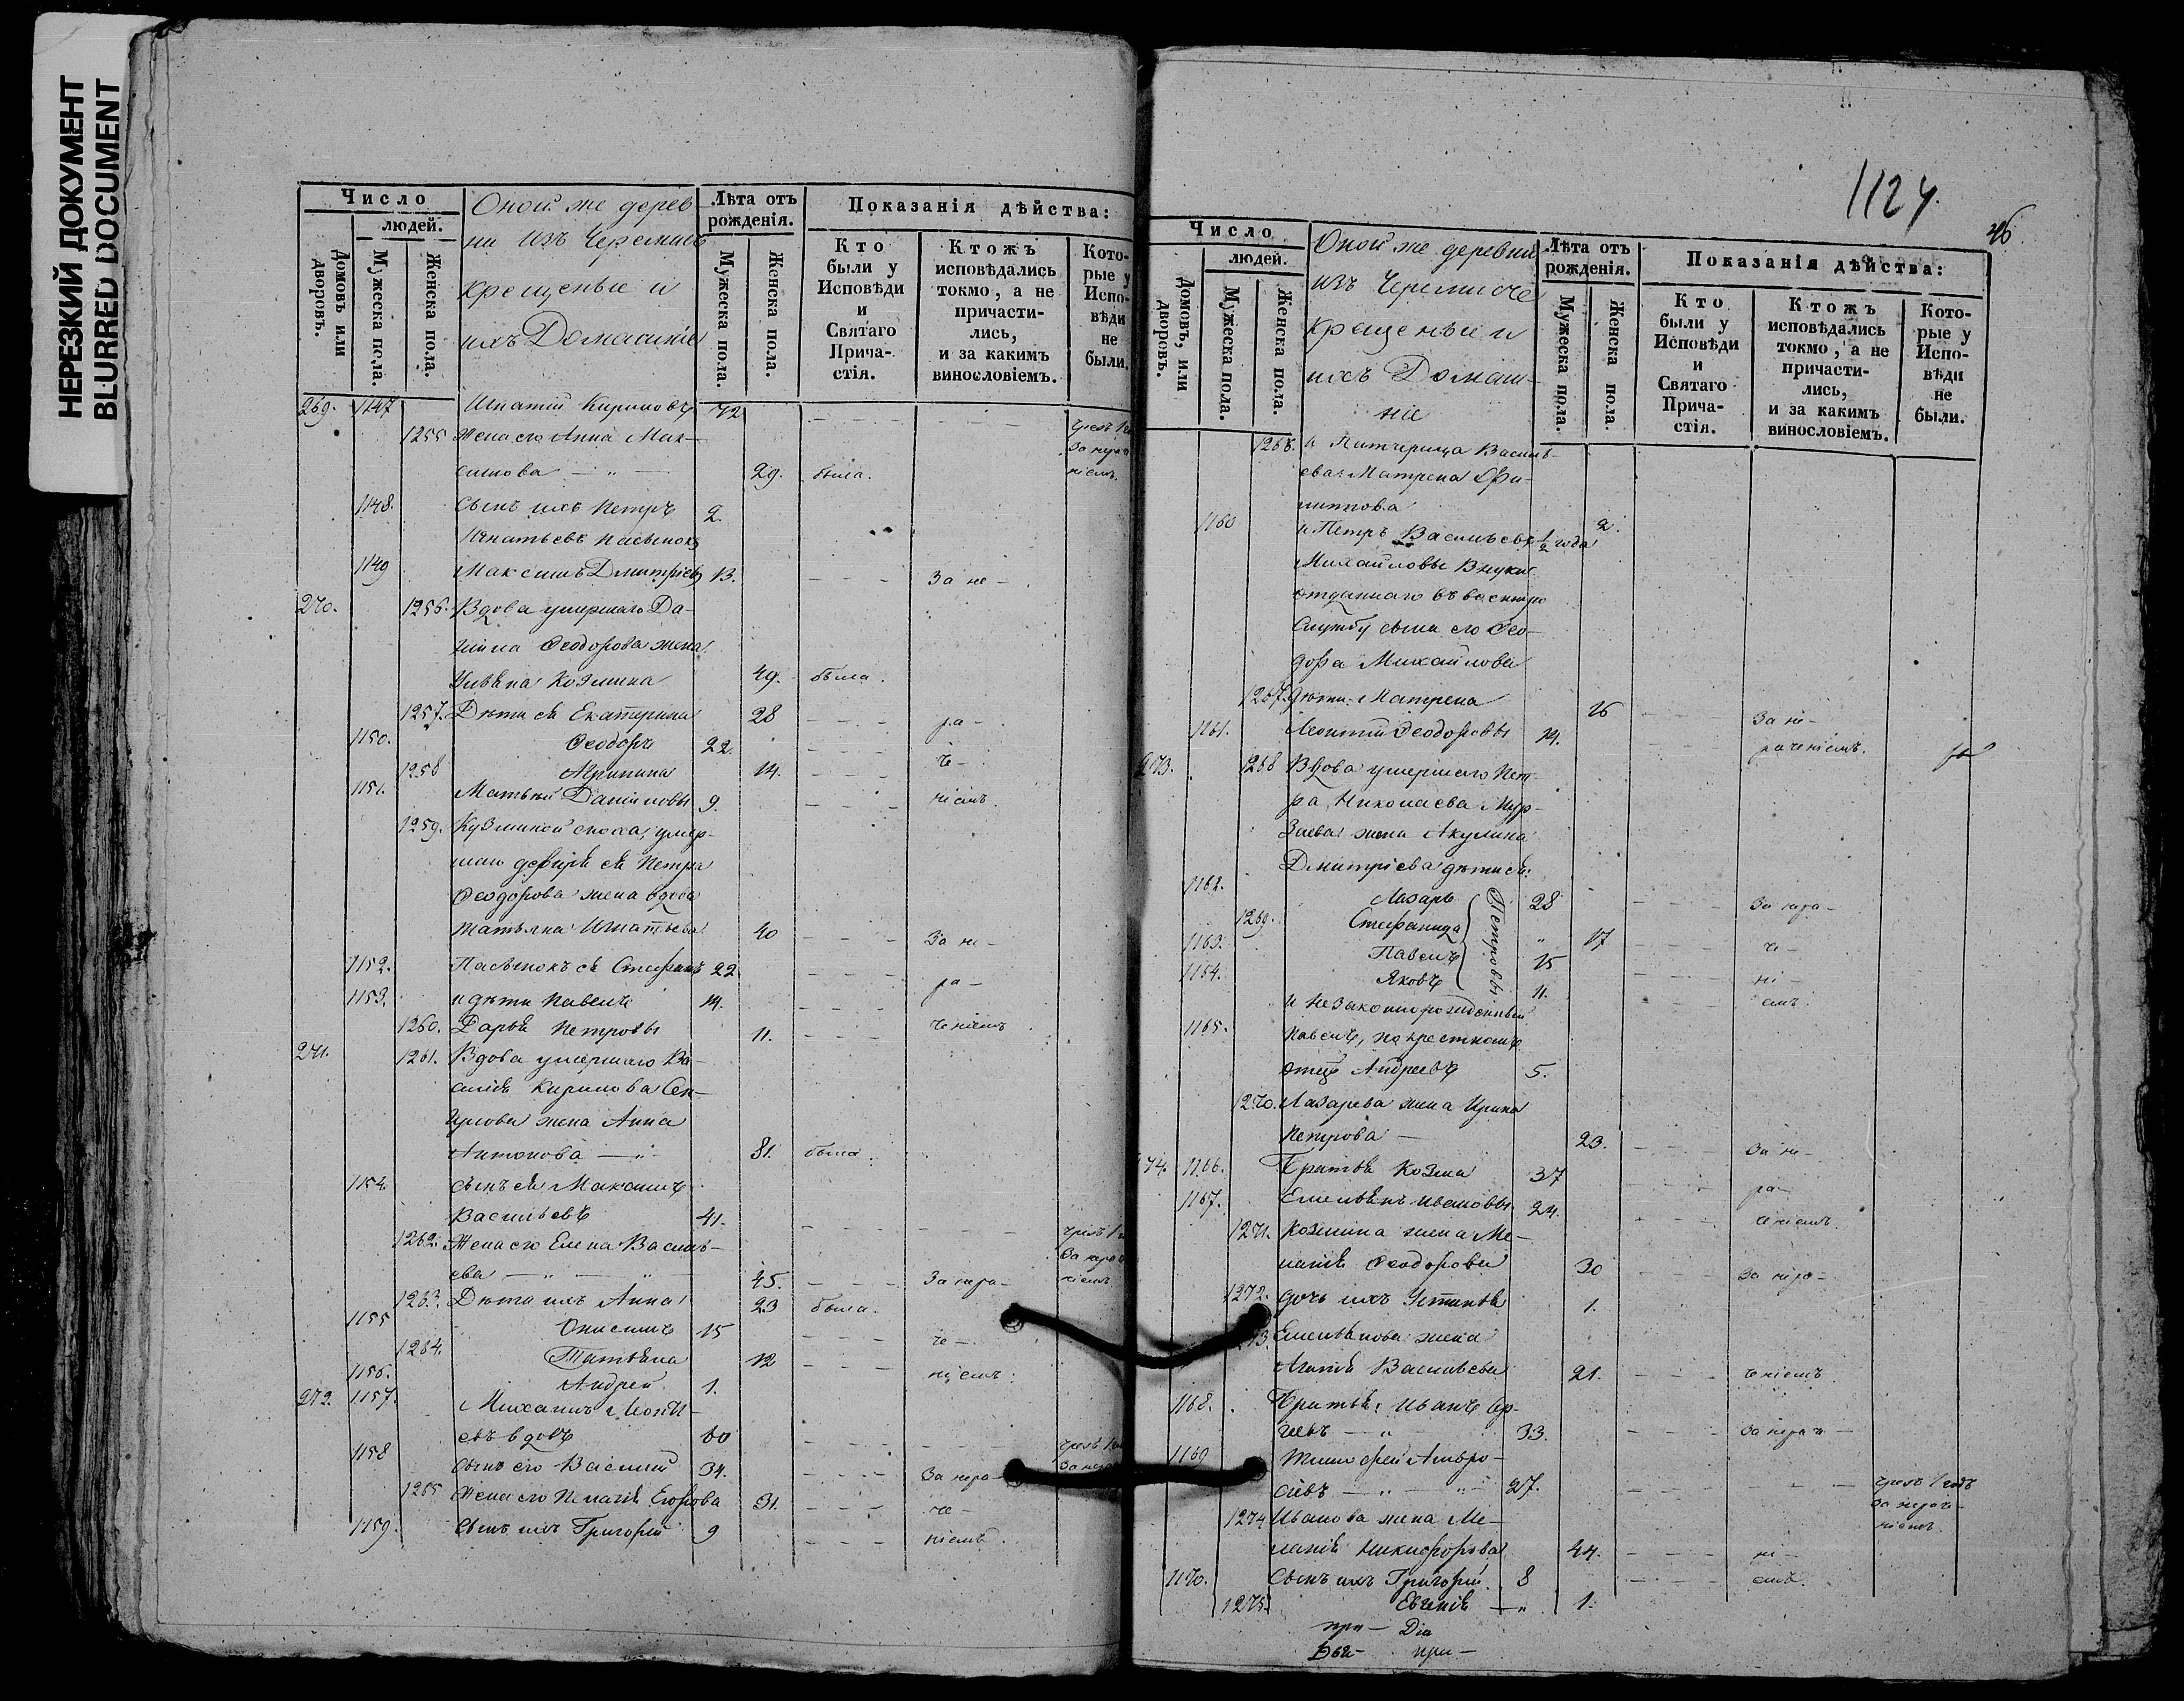 НЕРЕЗКИЙ ДОКУМЕНТ
BLURRED DOCUMENT
Число
людей.
Домовъ или дворовъ.
Мужеска пола.
Женска пола.
Оной же дерев
ни изъ Черемисъ
крещеные и
ихъ Домашніе
Лѣта отъ рожденія.
Мужеска пола.
Женска пола.
Показанія дѣйства:
Кто были у Исповѣди и Святаго Прича-стія.
Ктожъ исповѣдались токмо, а не причасти-лись, и за какимъ винословіемъ.
Кото-рые у Испо-вѣди не были.
269. 1147 Игнатій Кириловъ 42
1255 Жена его Анна Мак-
симова — " — 29. была.
1148. Сынъ ихъ Петръ 2.
Игнатьевъ пасынокъ
1149 Максимъ Дмитріевъ 13. За не-
270. 1256. Вдова умершаго Да-
ніила Ѳеодорова жена
Ульяна Козмина 49. была.
1257. Дѣти ея Екатерина 28 ра-
1150. Ѳеодоръ 22. че-
1258 Агрипина 14. ніемъ.
1151. Матвей Даниловы 9.
1259. Кузминой сноха, умер-
шаго деверя ея Петра
Ѳеодорова жена вдова
Татьяна Игнатьева 40 За не-
1152. Пасынокъ ея Стефанъ 22 ра-
1153. и дѣти Павелъ 14.
1260. Дарья Петровы 11. ченіемъ
271. 1261. Вдова умершаго Ва-
силія Кирилова Сен-
жена Анна
Антонова — " 81. была.
1154 сынъ ея Максимъ
Васильевъ 41.
1262. Жена его Елена Василь-
ева — " — " — 45. За нера-
1263. Дѣти ихъ Анна 23 была.
1155 Онисимъ 15 че-
1264. Татьяна 12 ніемъ.
1156. Андрей 1.
272. 1157. Михаилъ
евъ вдовъ 60
1158 Сынъ его Василій 34. За нера-
1265 Жена его Пелагія Егорова 31. че-
1159. Сынъ ихъ Григорій 9 ніемъ.
1124.
46.
Число
людей.
Домовъ, или дворовъ.
Мужеска пола.
Женска пола.
Оной же деревни
изъ Черемисъ
крещеные и
ихъ Домаш-
ніе
Лѣта отъ рожденія.
Мужеска пола.
Женска пола.
Показанія дѣйства:
Кто были у Исповѣди и Святаго Прича-стія.
Ктожъ исповѣдались токмо, а не причасти-лись, и за какимъ винословіемъ.
Кото-рые у Испо-вѣди не были.
1266. и Падчерица Василь-
ева: Матрена Фи-
липпова 2.
1160 и Петръ Васильевъ 1/2 года
Михайловы Внуки
отданнаго въ военную
Службу сына его Ѳео-
дора Михайлова
1267. дѣти: Матрена 16 За не-
1161. Леонтій Ѳеодоровы 14. раченіемъ.
273. 1268 Вдова умершаго Пет-
ра Николаева Мур-
заева жена Акулина
Дмитріева дѣти ея:
1162. Лазарь 28 За нера-
1269. Стефанида " 17 че-
1163. Павелъ 15 ні-
1164. Яковъ 11. емъ.
Петровы
и незаконнорожденный
1165. Павелъ, по крестномъ
отцѣ Андреевъ 5.
1270. Лазарева жена Ирина
Петрова — 23. За не-
274. 1166. Братья Козма 37 ра-
1167. Емельянъ Ивановы 24. ченіемъ.
1271. Козмина жена Ме-
ланія Ѳеодорова 30 За нера-
1272. дочь ихъ Устинья 1.
1273. Емельянова жена
Агафія Васильева 21. ченіемъ
1168. Братья: Иванъ Ер-
— " 33. За нерач-
1169 Тимофей Амвро-
сіевъ — " — " — 27. чрезъ 1 годъ
за нераче-
ніемъ.
1274 Иванова жена Ме-
ланія Никифорова 44. ні-
1170. Сынъ ихъ Григорій 8 емъ.
1275. Евгенія — " 1.